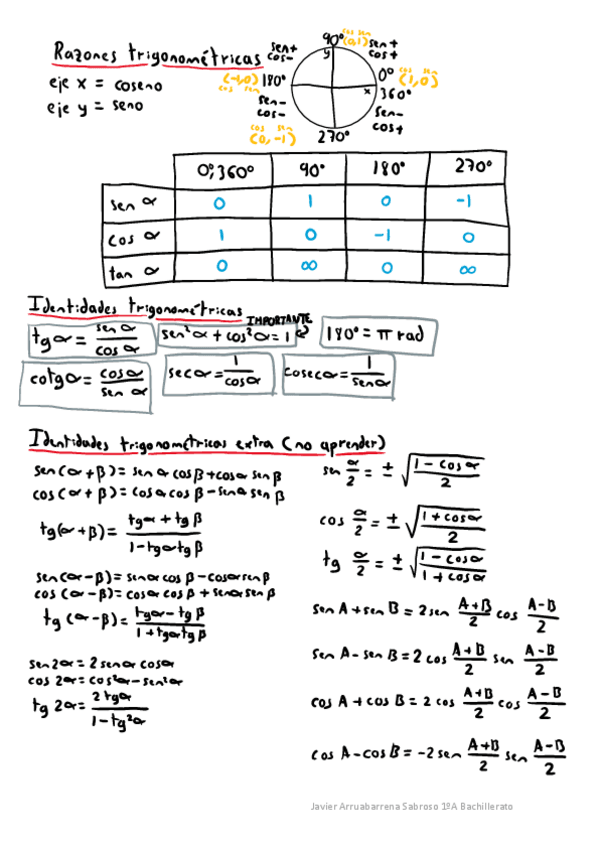 Razones trigonométricas
eje x = coseno
eje y = seno
90°
cos sen
(0,1)
sen+
cos-
sen+
cos+
y
(-1,0)
cos sen
180°
0°
360°
cos sen
(1,0)
x
sen-
cos-
sen-
cos+
cos sen
(0,-1)
270°
0°,360° 90° 180° 270°
sen α 0 1 0 -1
cos α 1 0 -1 0
tan α 0 ∞ 0 ∞
Identidades trigonométricas
IMPORTANTE
tgα = sen α / cos α
sen²α + cos²α = 1
180° = π rad
cotgα = cosα / sen α
secα = 1 / cosα
cosecα = 1 / senα
Identidades trigonométricas extra (no aprender)
sen(α+β) = sen α cos β + cosα sen β
cos(α+β) = cosα cos β - senα sen β
tg(α+β) = tgα + tg β / 1 - tgα tg β
sen(α-β) = senα cos β - cosα sen β
cos(α-β) = cosα cos β + senα sen β
tg(α-β) = tgα - tg β / 1 + tgα tg β
sen 2α = 2 senα cosα
cos 2α = cos²α - sen²α
tg 2α = 2 tgα / 1 - tg²α
sen α/2 = ± √(1 - cosα / 2)
cos α/2 = ± √(1 + cosα / 2)
tg α/2 = ± √(1 - cosα / 1 + cosα)
sen A + sen B = 2 sen A+B/2 cos A-B/2
sen A - sen B = 2 cos A+B/2 sen A-B/2
cos A + cos B = 2 cos A+B/2 cos A-B/2
cos A - cos B = -2 sen A+B/2 sen A-B/2
Javier Arruabarrena Sabroso 1ºA Bachillerato